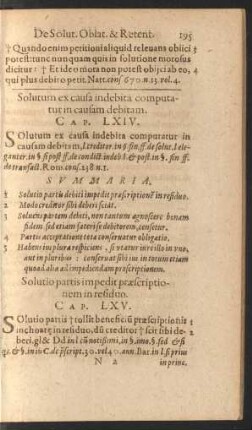 De Solut. Oblat. & Retent. 195
† Quando enim petitioni aliquid releuans obiici
potest: tunc nunquam quis in solutione morosus
dicitur: † Et ideo mota non potest obijci ab eo, 4
qui plus debito petit. Natt. cons 670. n. 15. vol. 4.
Solutum ex causa indebita computa-
tur in causam debitam.
CAP. LXIV.
SOlutum ex causa indebita computatur in
causam debitam, l. creditor. in § sin. ff. de solut. l. ele-
ganter. in § si post ff. de condict. indeb. & post. in § sin. ff.
de transact. Rom. cons. 258 n. 1.
SVMMARIA.
1 Solutio partis debiti impedit præscriptionē in residuo.
2 Modo creditor sibi deberi sciat.
3 Soluens partem debiti, non tantum agnoscere bonam
fidem sed etiam fateri se debitorem, censetur.
4 Partis acceptatione tota conseruatur obligatio.
5 Habens in plura officium, si vtatur iure illo in vno,
aut in pluribus: conseruat sibi ius in totum etiam
quoad alia ad impediendam præscriptionem.
Solutio partis impedit præscriptio-
nem in residuo.
CAP. LXV.
SOlutio partis † tollit beneficiū præscriptionis 1
inchoatę in residuo, dū creditor † scit sibi de- 2
beri. gl & Dd in l cū notissimi, in
q. & §. in iu C. de p̄script. 30. vel 40. ann. Bar. in l. si prius
N 2 in princ.